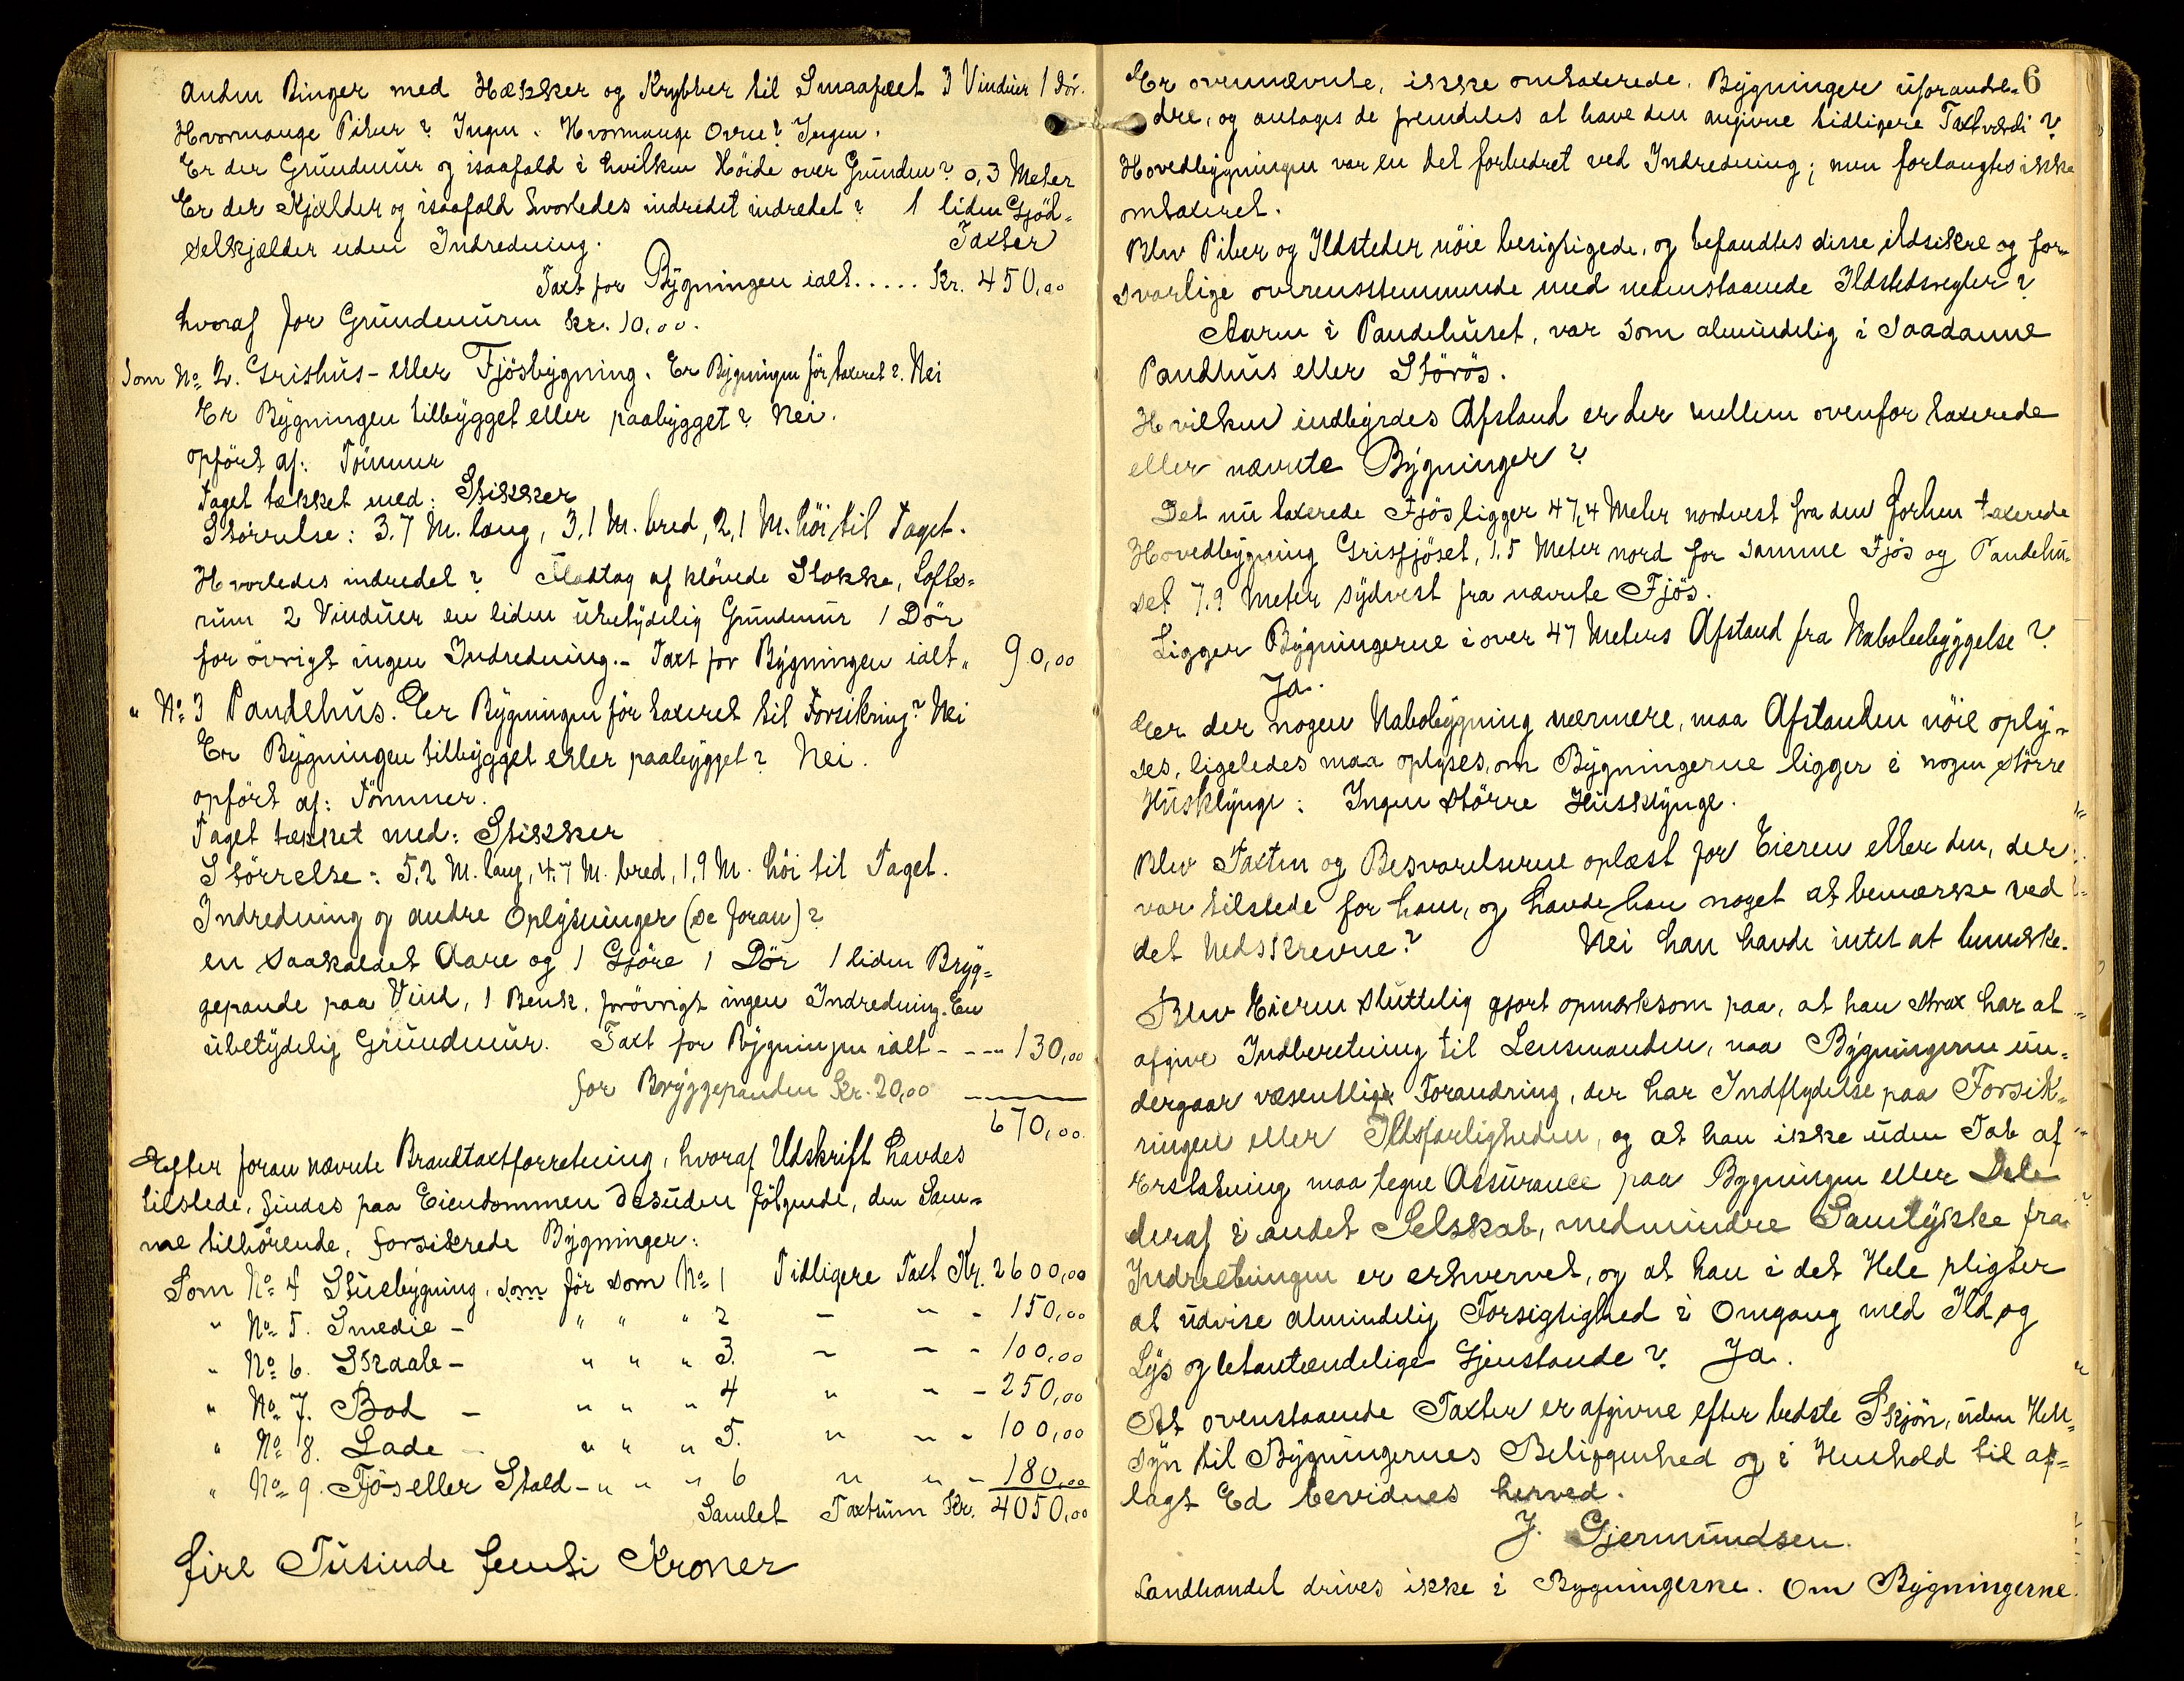 anden Binger med Hækker og Krybber til Smaafæet 3 Vinduer 1 Dör.
Hvormange Piber? Ingen. Hvormange Ovne? Ingen.
Er der Grundmur og isaafald i hvilken Höide over Grunden? 0,3 Meter
Er der Kjælder og isaafald hvorledes indredet indredet? 1 liden Gjöd-
selkjælder uden Indredning. Taxter
Taxt for Bygningen ialt..... Kr. 450,00
hvoraf for Grundmuren Kr. 10,00.
Som No 2. Grishus- eller Fjösbygning. Er Bygningen för taxeret? Nei
Er Bygningen tilbygget eller paabygget? Nei.
opfört af: Tömmer
Taget tækket med: Stikker
Störrelse: 3,7 M. lang, 3,1 M. bred, 2,1 M. höi til Taget.
Hvorledes indredet? Fladtag af klövede Stokke, Lofts-
rum 2 Vinduer en liden ubetydelig Grundmur 1 Dör
for övrigt ingen Indredning.- Taxt for Bygningen ialt " 90,00
" No 3 Pandehus. Er Bygningen för taxeret til Forsikring? Nei
Er Bygningen tilbygget eller paabygget? Nei.
opfört af: Tömmer.
Taget tækket med: Stikker
Störrelse: 5,2 M. lang, 4,7 M. bred, 1,9 M. höi til Taget.
Indredning og andre Oplysninger (se foran)?
en saakaldet Aare og 1 Gjöre 1 Dör 1 liden Bryg-
gepande paa Vind, 1 Benk, forövrigt ingen Indredning. En
ubetydelig Grundmur. Taxt for Bygningen ialt - - - " 130,00
for Bryggepanden Kr. 20,00
670,00.
Efter foran nævnte Brandtaxtforretning, hvoraf Udskrift havdes
tilstede, findes paa Eiendommen desuden fölgende, den Sam-
me tilhörende, forsikrede Bygninger:
Som No 4 Stuebygning, som för som No 1 Tidligere Taxt Kr. 2600,00
" No 5. Smedie - " " " 2 - " - 150,00
" No 6. Skaale - " " " 3. - - - 100,00
" No 7. Bod - " " " 4 " " - 250,00
" No 8. Lade - " " " 5. " " - 100,00
" No 9. Fjös eller Stald - " " " 6 " " - 180,00
Samlet Taxtsum Kr. 4050,00
fire Tusinde femti Kroner
6
Er ovennævnte, ikke omtaxerede, Bygninger uforandre-
dre, og antages de fremdeles at have den angivne tidligere Taxtværdi?
Hovedbygningen var en Del forbedret ved Indredning; men forlangtes ikke
omtaxeret.
Blev Piber og Ildsteder nöie besigtigede, og befandtes disse ildsikre og for-
svarlige overensstemmende med nedenstaaende Ildstedsregler?
Aaren i Pandehuset, var som almindelig i saadanne
Pandhus eller Störös.
Hvilken indbyrdes Afstand er der mellem ovenfor taxerede
eller nævnte Bygninger?
Det nu taxerede Fjös ligger 47,4 Meter nordvest fra den forhen taxerede
Hovedbygning Grisfjöset, 1,5 Meter nord for samme Fjös og Pandehu-
set 7,9 Meter sydvest fra nævnte Fjös.
Ligger Bygningerne i over 47 Meters Afstand fra Nabobebyggelse?
Ja.
Er der nogen Nabobygning nærmere, maa Afstanden nöie oply-
ses, ligeledes maa oplyses, om Bygningerne ligger i nogen större
Husklynge: Ingen större Husklynge.
Blev Taxten og Besvarelserne oplæst for Eieren eller den, der
var tilstede for ham, og havde han noget at bemærke ved
det Nedskrevne? Nei han havde intet at bemærke.
Blev Eieren sluttelig gjort opmærksom paa, at han strax har at
afgive Indberetning til Lensmanden, naa Bygningerne un-
dergaar væsentlige Forandring, der har Indflydelse paa Forsik-
ringen eller Ildsfarligheden, og at han ikke uden Tab af
Erstatning maa tegne Assurance paa Bygningen eller Dele
deraf i andet Selskab, medmindre Samtykke fra
Indretningen er erhvervet, og at han i det Hele pligter
at udvise almindelig Forsigtighed i Omgang med Ild og
Lys og letantændelige Gjenstande? Ja.
At ovenstaaende Taxter er afgivne efter bedste Skjön, uden Hen-
syn til Bygningernes Beliggenhed og i Henhold til af-
lagt Ed bevidnes herved.
J. Gjermundsen.
Landhandel drives ikke i Bygningerne. Om Bygningerne